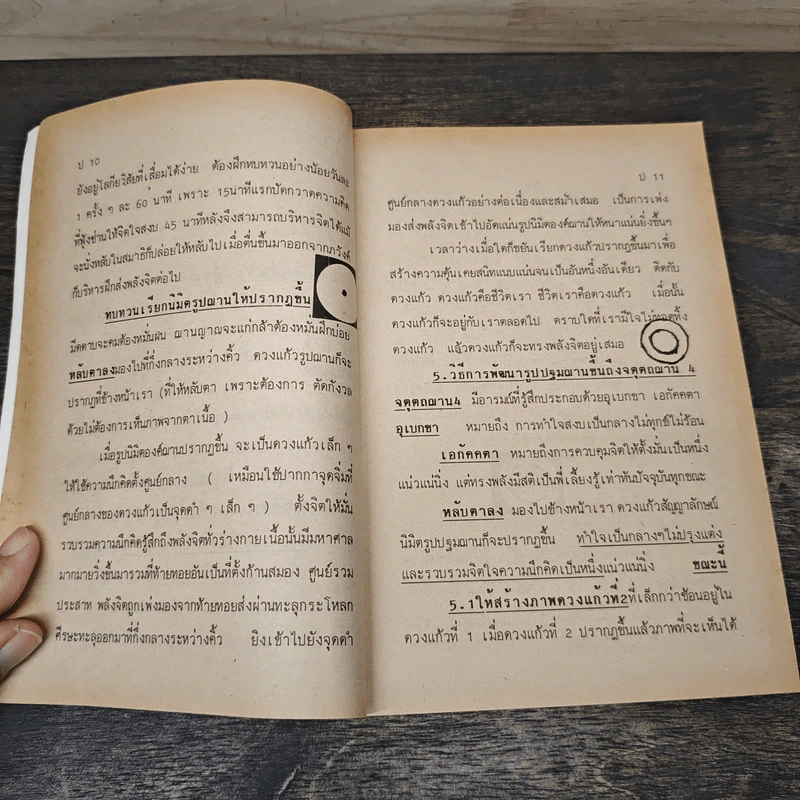 ป 10
ยังอยู่โลกียวิสัยที่เสื่อมได้ง่าย ต้องฝึกทบทวนอย่างน้อยวันละ
1 ครั้ง ๆ ละ 60 นาที เพราะ 15นาทีแรกปัดกวาดความคิด
ที่ฟุ้งซ่านให้จิตใจสงบ 45 นาทีหลังจึงสามารถบริหารจิตได้แม้
จะนั่งหลับในสมาธิก็ปล่อยให้หลับไป เมื่อตื่นขึ้นมาออกจากภวังค์
ก็บริหารฝึกส่งพลังจิตต่อไป
ทบทวนเรียกนิมิตรูปฌานให้ปรากฏขึ้น
มีดดาบจะคมต้องหมั่นฝน ฌานญาณจะแก่กล้าต้องหมั่นฝึกบ่อย
หลับตาลงมองไปที่กึ่งกลางระหว่างคิ้ว ดวงแก้วรูปฌานก็จะ
ปรากฏที่ข้างหน้าเรา (ที่ให้หลับตา เพราะต้องการ ตัดกังวล
ด้วยไม่ต้องการเห็นภาพจากตาเนื้อ )
เมื่อรูปนิมิตองค์ฌานปรากฏขึ้น จะเป็นดวงแก้วเล็ก ๆ
ให้ใช้ความนึกคิดตั้งศูนย์กลาง ( เหมือนใช้ปากกาจุดจิ่มที่
ศูนย์กลางของดวงแก้วเป็นจุดดำ ๆ เล็ก ๆ ) ตั้งจิตให้มั่น
รวบรวมความนึกคิดรู้สึกถึงพลังจิตทั่วร่างกายเนื้อนั้นมีมหาศาล
มากมายวิ่งขึ้นมารวมที่ท้ายทอยอันเป็นที่ตั้งก้านสมอง ศูนย์รวม
ประสาท พลังจิตถูกเพ่งมองจากท้ายทอยส่งผ่านทะลุกระโหลก
ศีรษะทะลุออกมาที่กึ่งกลางระหว่างคิ้ว ยิงเข้าไปยังจุดดำ
ป 11
ศูนย์กลางดวงแก้วอย่างต่อเนื่องและสม่ำเสมอ เป็นการเพ่ง
มองส่งพลังจิตเข้าไปอัดแน่นรูปนิมิตองค์ฌานให้หนาแน่นยิ่งขึ้นๆ
เวลาว่างเมื่อใดก็ขยันเรียกดวงแก้วปรากฏขึ้นมาเพื่อ
สร้างความคุ้นเคยสนิทแนบแน่นจนเป็นอันหนึ่งอันเดียว ติดกับ
ดวงแก้ว ดวงแก้วคือชีวิตเรา ชีวิตเราคือดวงแก้ว เมื่อนั้น
ดวงแก้วก็จะอยู่กับเราตลอดไป ตราบใดที่เรามีใจไม่ทอดทิ้ง
ดวงแก้ว แล้วดวงแก้วก็จะทรงพลังจิตอยู่เสมอ
5.วิธีการพัฒนารูปปฐมฌานขึ้นถึงจตุตถฌาน 4
จตุตถฌาน4 มีอารมณ์ที่รู้สึกประกอบด้วยอุเบกขา เอกัคคตา
อุเบกขา หมายถึง การทำใจสงบเป็นกลางไม่ทุกข์ไม่ร้อน
เอกัคคตา หมายถึงการควบคุมจิตให้ตั้งมั่นเป็นหนึ่ง
แน่วแน่นิ่ง แต่ทรงพลังมีสติเป็นพี่เลี้ยงรู้เท่าทันปัจจุบันทุกขณะ
หลับตาลง มองไปข้างหน้าเรา ดวงแก้วสัญญาลักษณ์
นิมิตรูปปฐมฌานก็จะปรากฏขึ้น ทำใจเป็นกลางๆไม่ปรุงแต่ง
และรวบรวมจิตใจความนึกคิดเป็นหนึ่งแน่วแน่นิ่ง ขณะนี้
5.1ให้สร้างภาพดวงแก้วที่2ที่เล็กกว่าซ้อนอยู่ใน
ดวงแก้วที่ 1 เมื่อดวงแก้วที่ 2 ปรากฏขึ้นแล้วภาพที่จะเห็นได้